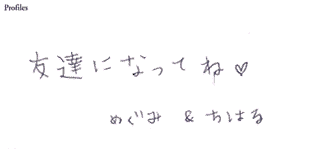 Profiles
友達になってね♡
めぐみ & ちはる